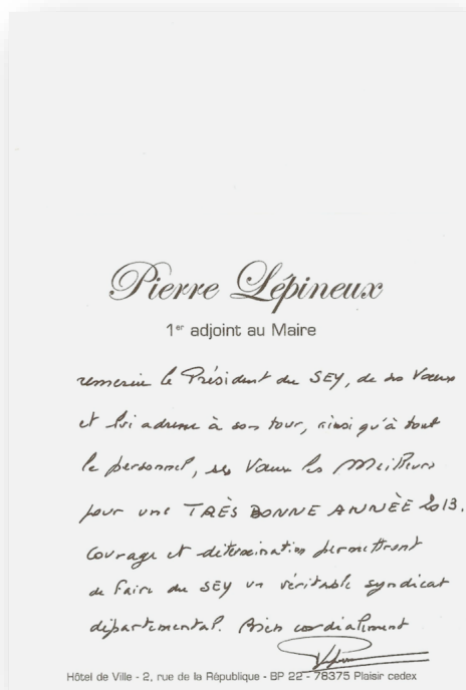 Pierre Lépineux
1er adjoint au Maire
remercie le Président du SEY, de ses Vœux
et lui adresse à son tour, ainsi qu'à tout
le personnel, ses Vœux les Meilleurs
pour une TRÈS BONNE ANNÉE 2013.
Courage et détermination permettront
de faire du SEY un véritable syndicat
départemental. Bien cordialement
Hôtel de Ville - 2, rue de la République - BP 22 - 78375 Plaisir cedex